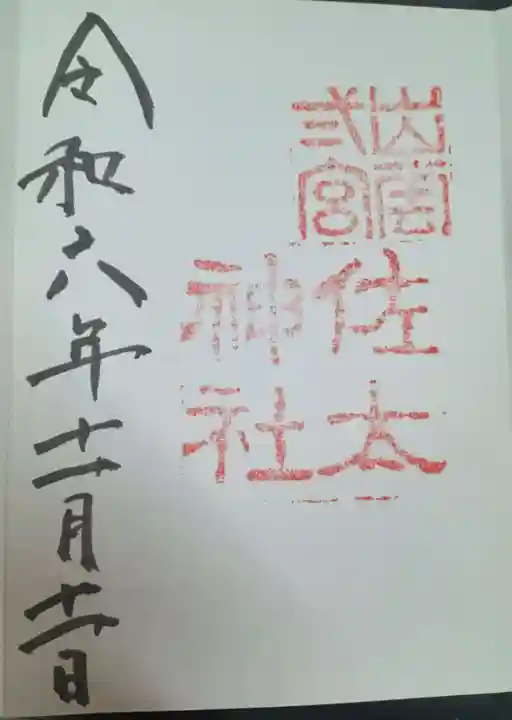 出雲
弍宮
佐太
神社
令和六年十一月十一日